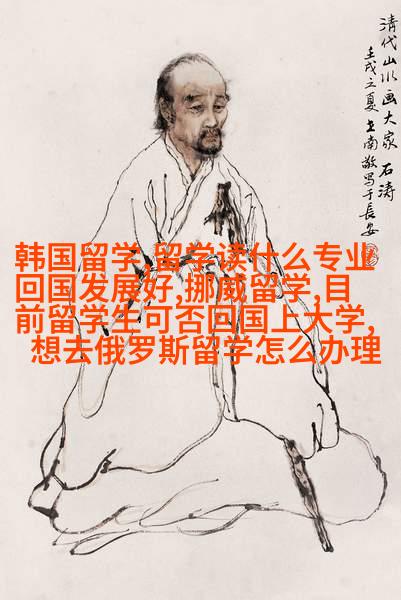 清代山水画大家 石涛
壬戌之夏 王南敬写于長安
韩国留学,留学读什么专业
回国发展好,挪威留学,目
前留学生可否回国上大学,
想去俄罗斯留学怎么办理